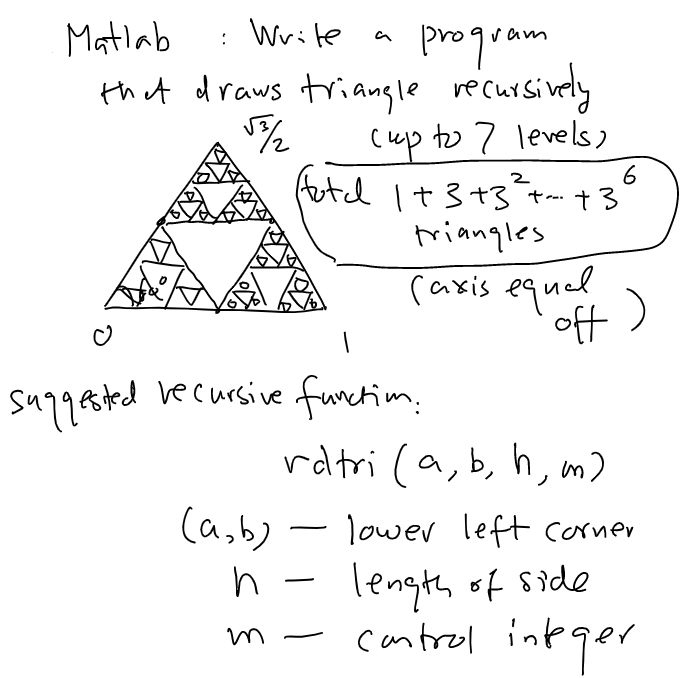 Matlab : Write a program
that draws triangle recursively
(up to 7 levels)
√3/2
total 1 + 3 + 3² + ... + 3⁶
triangles
(axis equal
off)
60°
0
1
suggested recursive function:
rdtri (a, b, h, m)
(a,b) — lower left corner
h — length of side
m — control integer